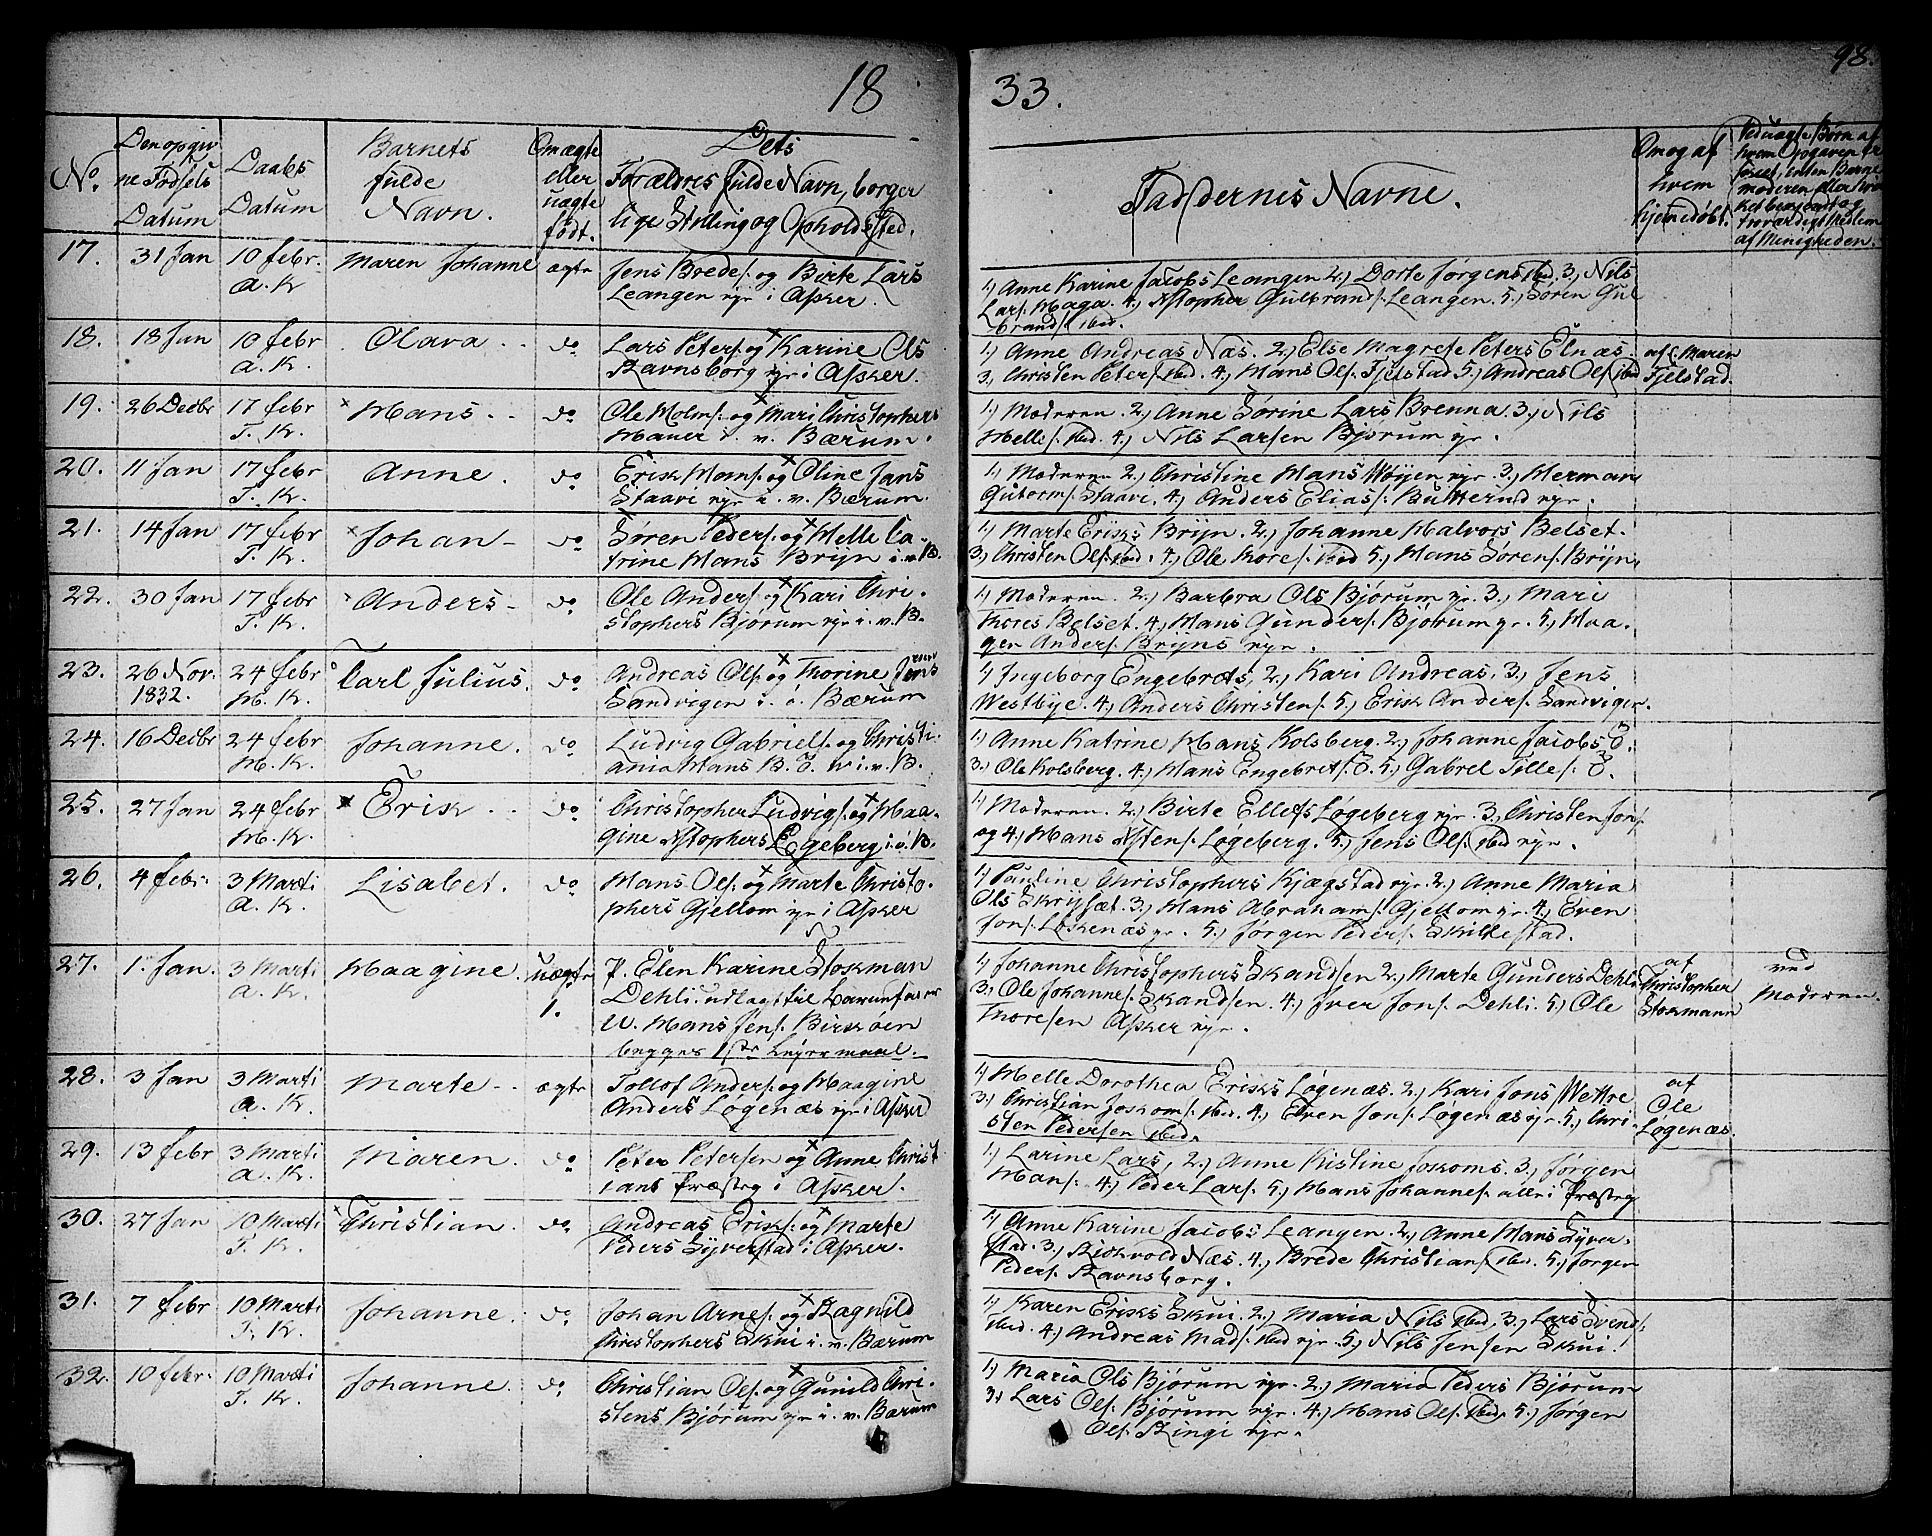 18
33.
98.
No.
Den opgiv
ne Fødsels
Datum
Daabs
Datum
Barnets
fulde
Navn.
Om ægte
eller
uægte
født.
Dets
Forældres fulde Navn, borger
lige Stilling og Opholdssted.
Faddernes Navne.
Om og af
hvem
hjemedøbt.
af Menigheden.
17. 31 Jan 10 febr. Maren Johanne ægte Jens Bredes. og Birte Lars
A. K. Leangen eje i Asker.
1.) Anne Karine Jacobs Leangen 2.) Dorte Jørgens ibid. 3.) Nils
Lars. Haga. 4.) Xstopher Gulbrands. Leangen. 5.) Sören Gul
brands. ibid.
18. 18 Jan 10 febr Olava do Lars Peters. og Karine Ols
A. K. Ravnsborg eje i Asker.
1.) Anne Andreas Næs. 2.) Else Magrete Peters Elnæs.
3.) Christen Peters. ibid. 4.) Hans Ols. Fjelstad 5.) Andreas Ols. ibid
af E. Maren
Fjelstad.
19. 26 Decbr 17 febr Hans do Ole Holms. og Mari Christophers
T. K. Hauer i. v. Bærum.
1.) Moderen. 2.) Anne Sörine Lars Brenna. 3.) Nils
Helles. ibid. 4.) Nils Larsen Bjørum eje.
20. 11 Jan 17 febr Anne. do Erik Homs. og Oline Jans
T. K. Staavi eje i. v. Bærum.
1.) Moderen 2.) Christine Hans Wøyen eje. 3.) Herman
Gutorms. Staavi. 4.) Anders Elias. Butterud eje.
21. 14 Jan 17 febr Johan do Sören Peders. og Helle Ca-
T. K. trine Hans Bryn i. v. B.
1.) Marte Eriks Bryn. 2.) Johanne Halvors Belset.
3.) Christen Ols. ibid. 4.) Ole Thores. ibid 5.) Hans Sörens. Bryn.
22. 30 Jan 17 febr Anders do Ole Anders. og Kari Chri-
T. K. stophers Bjørum eje i. v. B.
1.) Moderen. 2.) Barbra Ols Bjørum eje. 3.) Mari
Thores Belset. 4.) Hans Gunders. Bjørum eje. 5.) Haa-
gen Anders. Bryns eje.
23. 26 Nov. 24 febr Carl Julius. do Andreas Ols. og Thorine Jens
1832. H. K. Sandvigen i. ö. Bærum
1.) Ingeborg Engebrets, 2.) Kari Andreas, 3.) Jens
Westbye. 4.) Anders Christens. 5.) Erik Anders. Sandvigen.
24. 16 Decbr 24 febr Johanne. do Ludvig Gabriels. og Christi-
H. K. ania Hans B. i. v. B.
1.) Anne Katrine Hans Kolsberg. 2.) Johanne Jacobs Ö.
3.) Ole Kolsberg. 4.) Hans Engebrets. Ö. 5.) Gabrel Tilles. Ö.
25. 27 Jan 24 febr Erik do Christopher Ludvigs. og Maa-
H. K. gine Xstophers Løgeberg i. ö. B.
1.) Moderen. 2.) Birte Ellefs Løgeberg eje. 3.) Christen Jons.
og 4.) Hans Xstens. Løgeberg. 5.) Jens Ols. ibid eje.
26. 4 febr. 3 Marti Lisabet. do Hans Ols. og Marte Christo-
A. K. phers Gjellom eje i Asker
1.) Pauline Christophers Kjægstad eje. 2.) Anne Maria
Ols Skrysæt. 3.) Hans Abrahams. Gjellom eje. 4.) Even
Jons. Løkenæs eje. 5.) Jørgen Peders. Skillestad.
27. 1. Jan. 3 Marti Maagine. uægte P. Elen Karine Stokman
A. K. 1. Dehli. udlagt til Barnefader
U. Hans Jens. Birkøen
begges 1ste Lejermaal.
1.) Johanne Christophers Skandsen 2.) Marte Gunders Dehli
3.) Ole Johannes. Skandsen. 4.) Iver Jons. Dehli. 5.) Ole
Thoresen Asker eje.
af
Christopher
Stokmann
ved
Moderen.
28. 3 Jan 3 Marti Marte ægte Tollof Anders. og Maagine
A. K. Anders Løgenæs eje i Asker
1.) Helle Dorothea Eriks Løgenæs. 2.) Kari Jons Wettre
3.) Christian Joskoms. ibid. 4.) Even Jons. Løgenæs eje. 5.) Chri-
sten Pedersen ibid.
af
Ole
Løgenæs.
29. 13 febr 3 Marti Maren. do Peter Petersen og Anne Christ
A. K. ians Præsteg i Asker.
1.) Larine Lars, 2.) Anne Kistine Joskoms. 3.) Jørgen
Hans. 4.) Peder Lars. 5.) Hans Johannes. alle i Præsteg
30. 27 Jan 10 Marti Christian. do Andreas Eriks. og Marte
T. K. Peders Syverstad i Asker.
1.) Anne Karine Jacobs Leangen. 2.) Anne Hans Syver-
stad. 3.) Riskvold Næs. 4.) Brede Christians. ibid. 5.) Jørgen
Peders. Ravnsborg.
31. 7 febr 10 Marti Johanne. do Johan Arnes. og Ragnild
T. K. Christophers Skui i. v. Bærum
1.) Karen Eriks Skui. 2.) Maria Nils ibid. 3.) Lars Svends.
ibid. 4.) Andreas Mads. ibid eje. 5.) Nils Jensen Skui.
32. 10 febr. 10 Marti Johanne. do Christian Ols. og Gunild Chri-
T. K. stens Bjørum eje i. v. Bærum
1.) Maria Ols Bjørum eje. 2.) Maria Peders Bjørum
3.) Lars Ols. Bjørum eje. 4.) Hans Ols. ibid. 5.) Jørgen
Ols. Ringi eje.